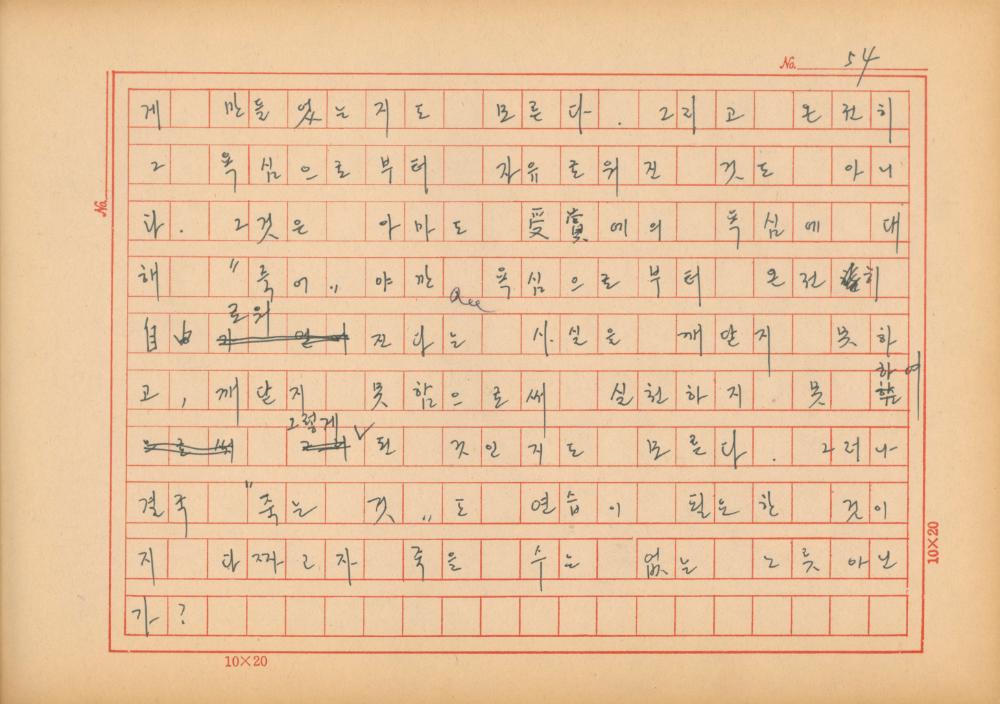 No. 54
게 만들었는지도 모른다. 그리고 온전히
그 욕심으로부터 자유로워진 것도 아니
다. 그것은 아마도 受賞에의 욕심에 대
해 "죽어" 야만 욕심으로부터 온전히
로워
自由 진다는 사실을 깨닫지 못하
하여
고, 깨닫지 못함으로써 실천하지 못
그렇게
된 것인지도 모른다. 그러나
결국 "죽는 것" 도 연습이 필요한 것이
지 다짜고자 죽을 수는 없는 노릇아닌
가?
No.
10×20
10×20